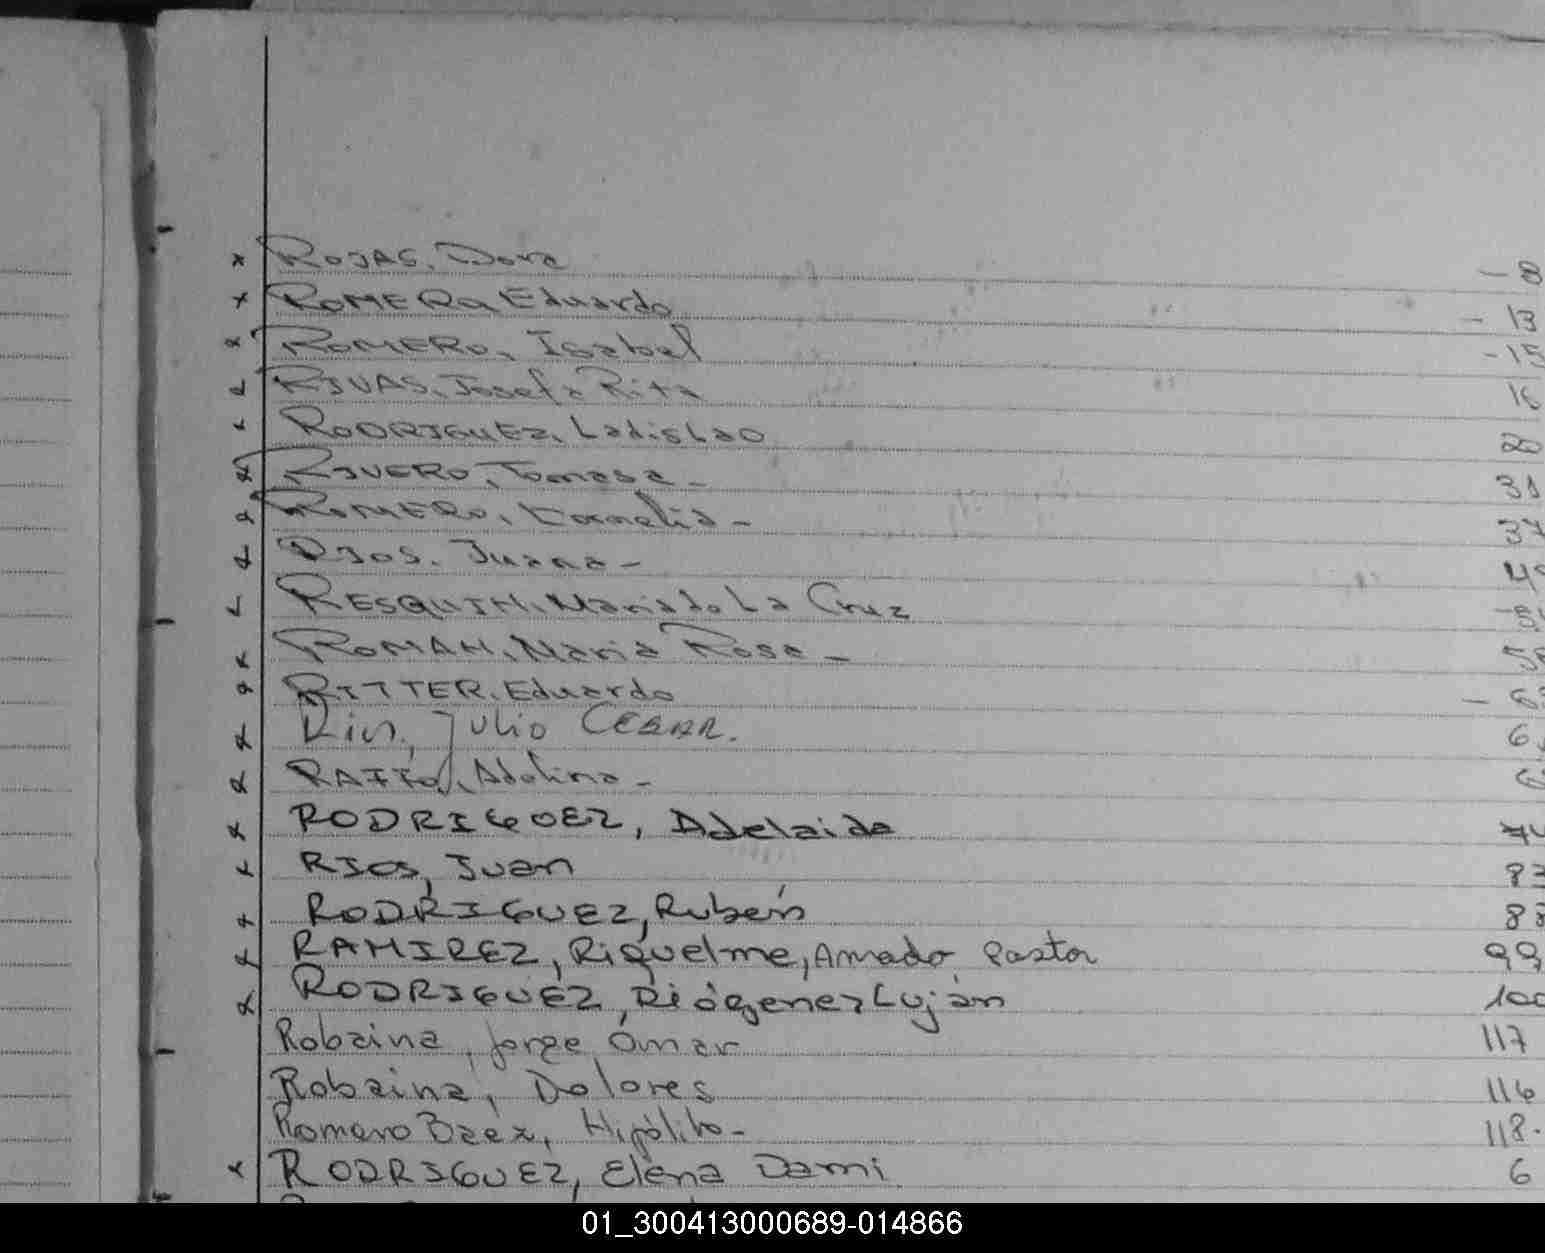 x ROJAS, Dora - 8
x ROMERO, Eduardo - 13
x ROMERO, Isabel - 15
x RIVAS, Josefa Rita 16
x RODRIGUEZ, Ladislao 20
x RIVERO, Tomasa - 31
x ROMERO, Cornelia - 37
x RIOS, Juana -
x RESQUIN, Maria de La Cruz
x ROMAN, Maria Rosa -
x RITTER, Eduardo
x Julio CESAR.
x Adelina -
x RODRIGUEZ, Adelaida
x RIOS, Juan
x RODRIGUEZ, Rubén 88
x RAMIREZ, Riquelme, Amado Pastor 99
x RODRIGUEZ, Diógenez Luján 100
Robaina, Jorge Omar 117
Robaina, Dolores 116
Romero Baez, Hipólito - 118.
x RODRIGUEZ, Elena Dami 6
01_300413000689-014866